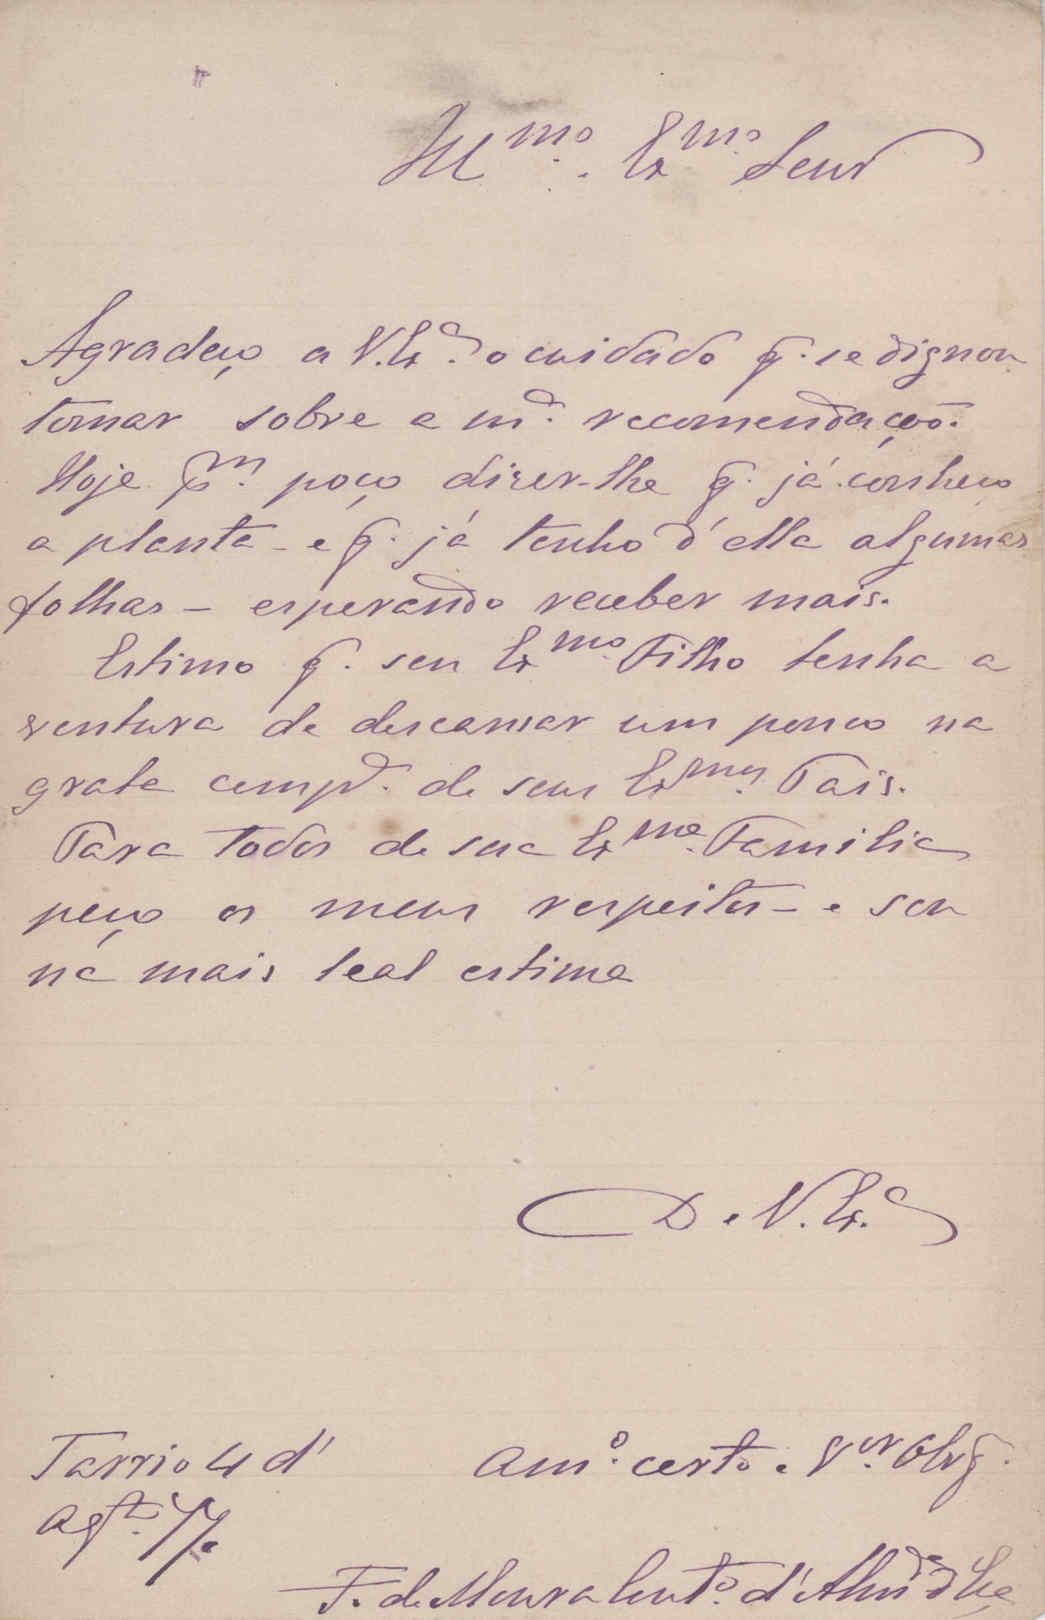 Ill.mo. Ex.mo Senr
Agradeço a V. Ex.a o cuidado q. se dignou
tomar sobre a m.a recomendação.
Hoje p.m poço dizer-lhe q. já conheço
a planta - e q. já tenho d'ella algumas
folhas - esperando receber mais.
Estimo q. seu Ex.mo Filho tenha a
ventura de descansar um pouco na
grata comp.a de seus Ex.mos Pais.
Para todos de sua Ex.ma Familia
peço os meus respeitos - e sou
na mais leal estima
De V. Ex.a
Tarrio 4 d'
Agt.o 77.
Am.o certo e V.or Obrg.
F. de Moura Cout.o d'Alm.da d'Eça